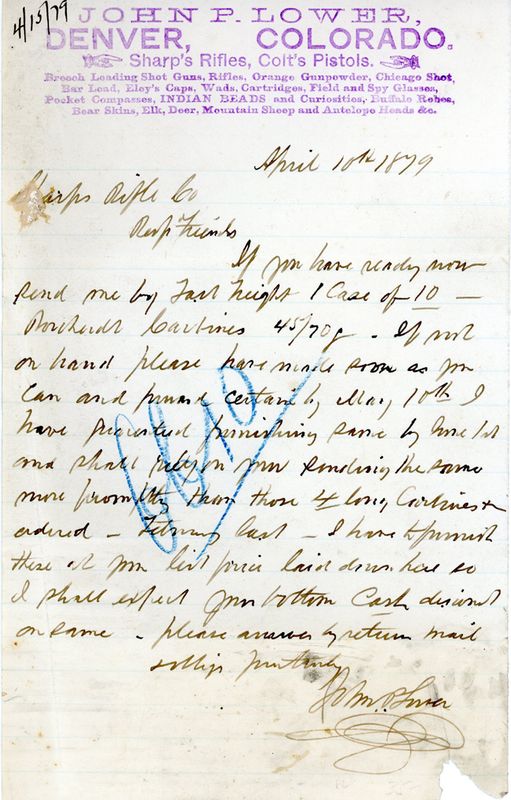 4/15/79
JOHN P. LOWER,
DENVER, COLORADO.
Sharp's Rifles, Colt's Pistols.
Breech Loading Shot Guns, Rifles, Orange Gunpowder, Chicago Shot,
Bar Lead, Eley's Caps, Wads, Cartridges, Field and Spy Glasses,
Pocket Compasses, INDIAN BEADS and Curiosities, Buffalo Robes,
Bear Skins, Elk, Deer, Mountain Sheep and Antelope Heads &c.
April 10th 1879
Sharps Rifle Co
Friends
If you have ready now
send me by fast freight 1 Case of 10 —
Borchardt Carbines 45/70 g - If not
on hand please have made soon as you
can and certain by May 10th I
have furnishing same by June 1st
and shall rely on your sending the same
more promptly than those 4 long Carbines
ordered - February last - I have to furnish
these at your list price laid down here so
I shall expect your bottom Cash discount
on same - please answer by return mail
& oblige
John P Lower